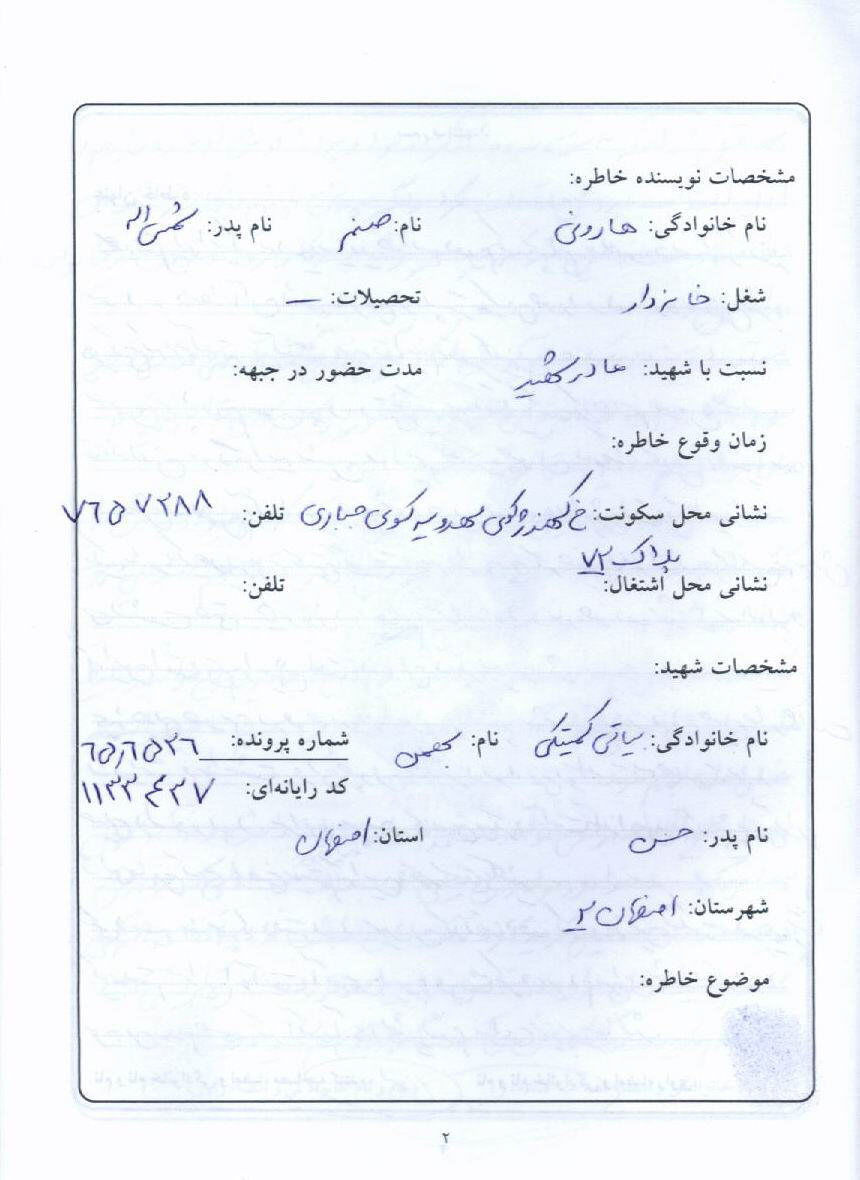 مشخصات نویسنده خاطره:
نام خانوادگی: هارونی نام: صنم نام پدر: شمس اله
شغل: خانه دار تحصیلات: —
نسبت با شهید: مادر شهید مدت حضور در جبهه:
زمان وقوع خاطره:
نشانی محل سکونت: خ کهندژ کوی کوی جباری تلفن:
پلاک ۷۲
نشانی محل اشتغال: تلفن:
مشخصات شهید:
نام خانوادگی: نام: بهمن شماره پرونده:
کد رایانه‌ای: ۱۱۳۳۴۳۷
نام پدر: حسن استان: اصفهان
شهرستان: اصفهان ۲
موضوع خاطره:
۲